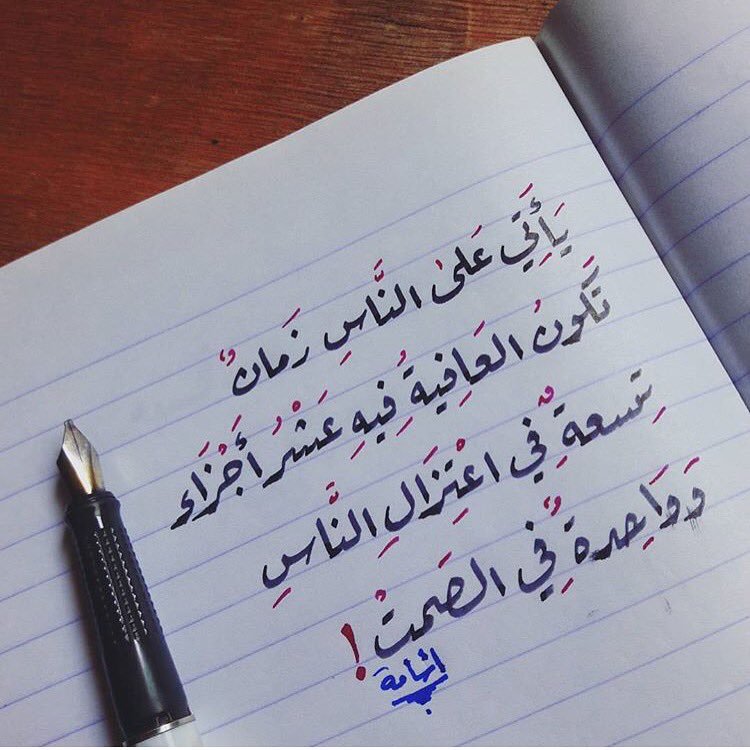 يَأَتِي عَلىٰ النَّاسِ زَمانٌ
تَكونُ العَافِيةُ فِيهِ عَشْرُ أَجْزَاءٍ
تِسعةٌ فِي اعْتِزَالِ النَّاسِ
وَوَاحِدةٌ فِي الصَمتْ !